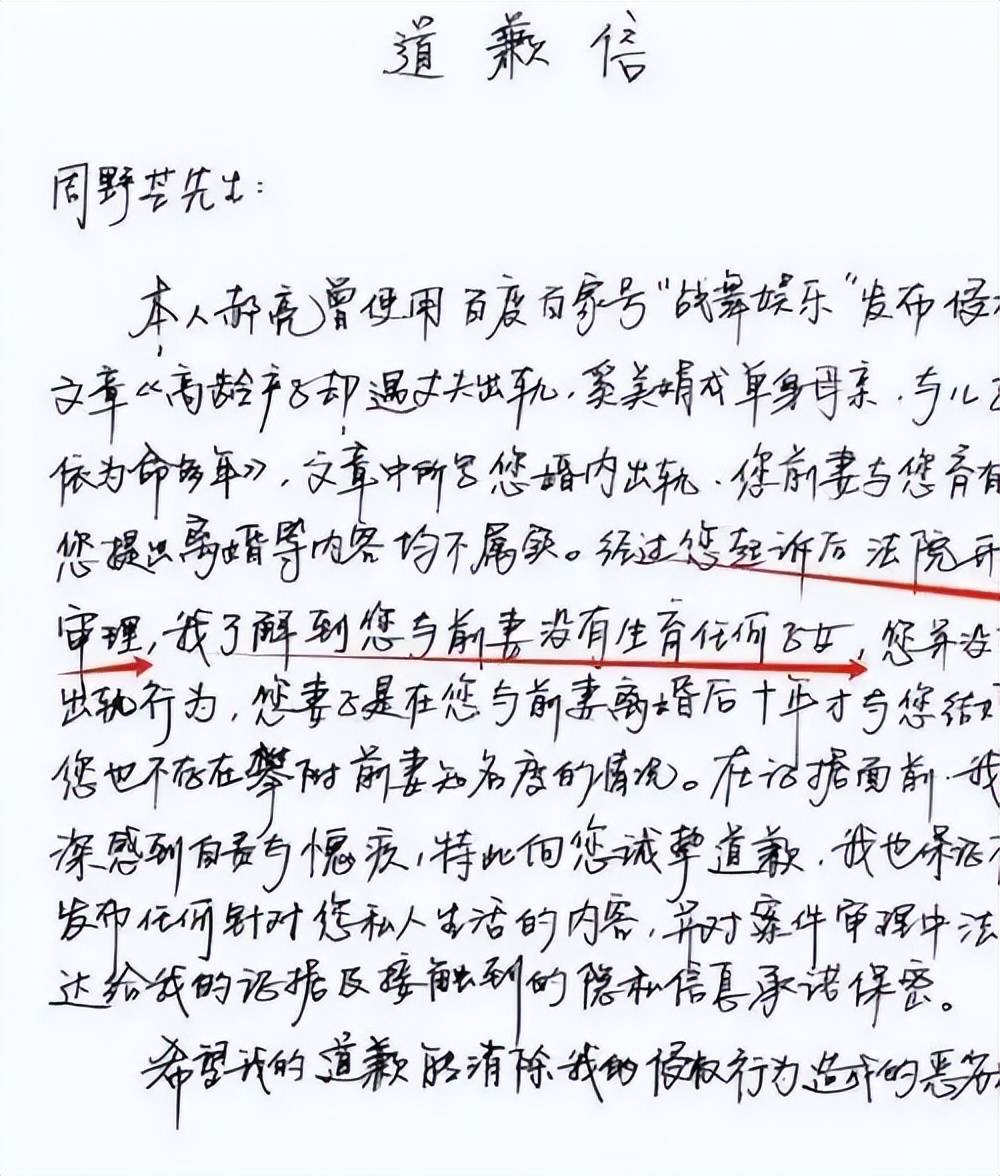 道歉信
周野芒先生：
本人郝亮曾使用百度百家号"战舞娱乐"发布侵
文章《高龄产子却遇丈夫出轨，奚美娟成单身母亲，与儿子
依为命多年》，文章中所写您婚内出轨、您前妻与您育有
您提出离婚等内容均不属实。经过您起诉后法院开
审理，我了解到您与前妻没有生育任何子女，您并没
出轨行为，您妻子是在您与前妻离婚后十年才与您结
您也不存在攀附前妻知名度的情况。在证据面前，我
深感到自责与愧疚，特此向您诚挚道歉，我也保证
发布任何针对您私人生活的内容，并对案件审理中法
达给我的证据及接触到的隐私信息承诺保密。
希望我的道歉能消除我的侵权行为造成的恶劣